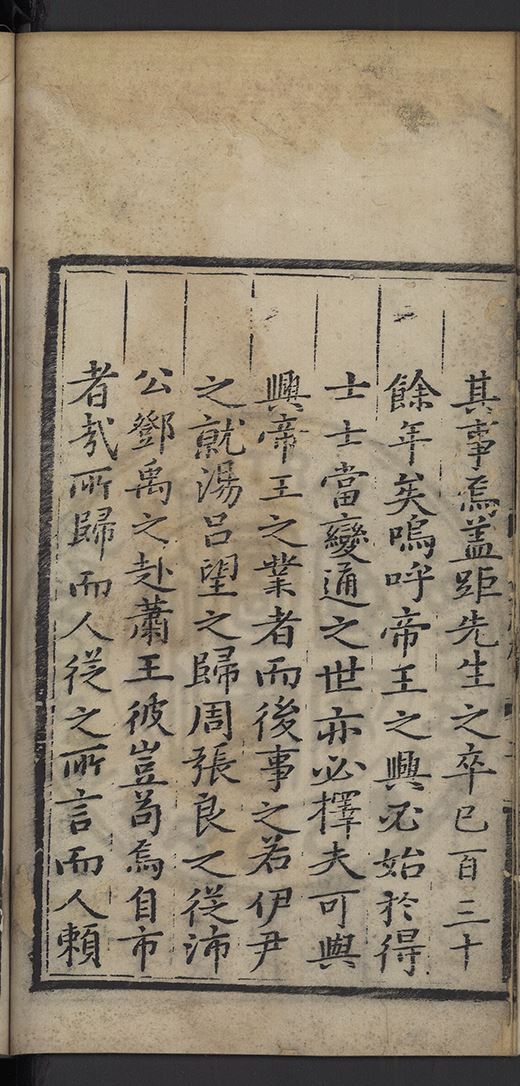 其事焉盖距先生之卒已百三十
餘年矣嗚呼帝王之興必始於得
士士當變通之世亦必擇夫可與
興帝王之業者而後事之若伊尹
之就湯吕望之歸周張良之從沛
公鄧禹之赴蕭王彼豈苟焉自市
者㢤所歸而人從之所言而人賴